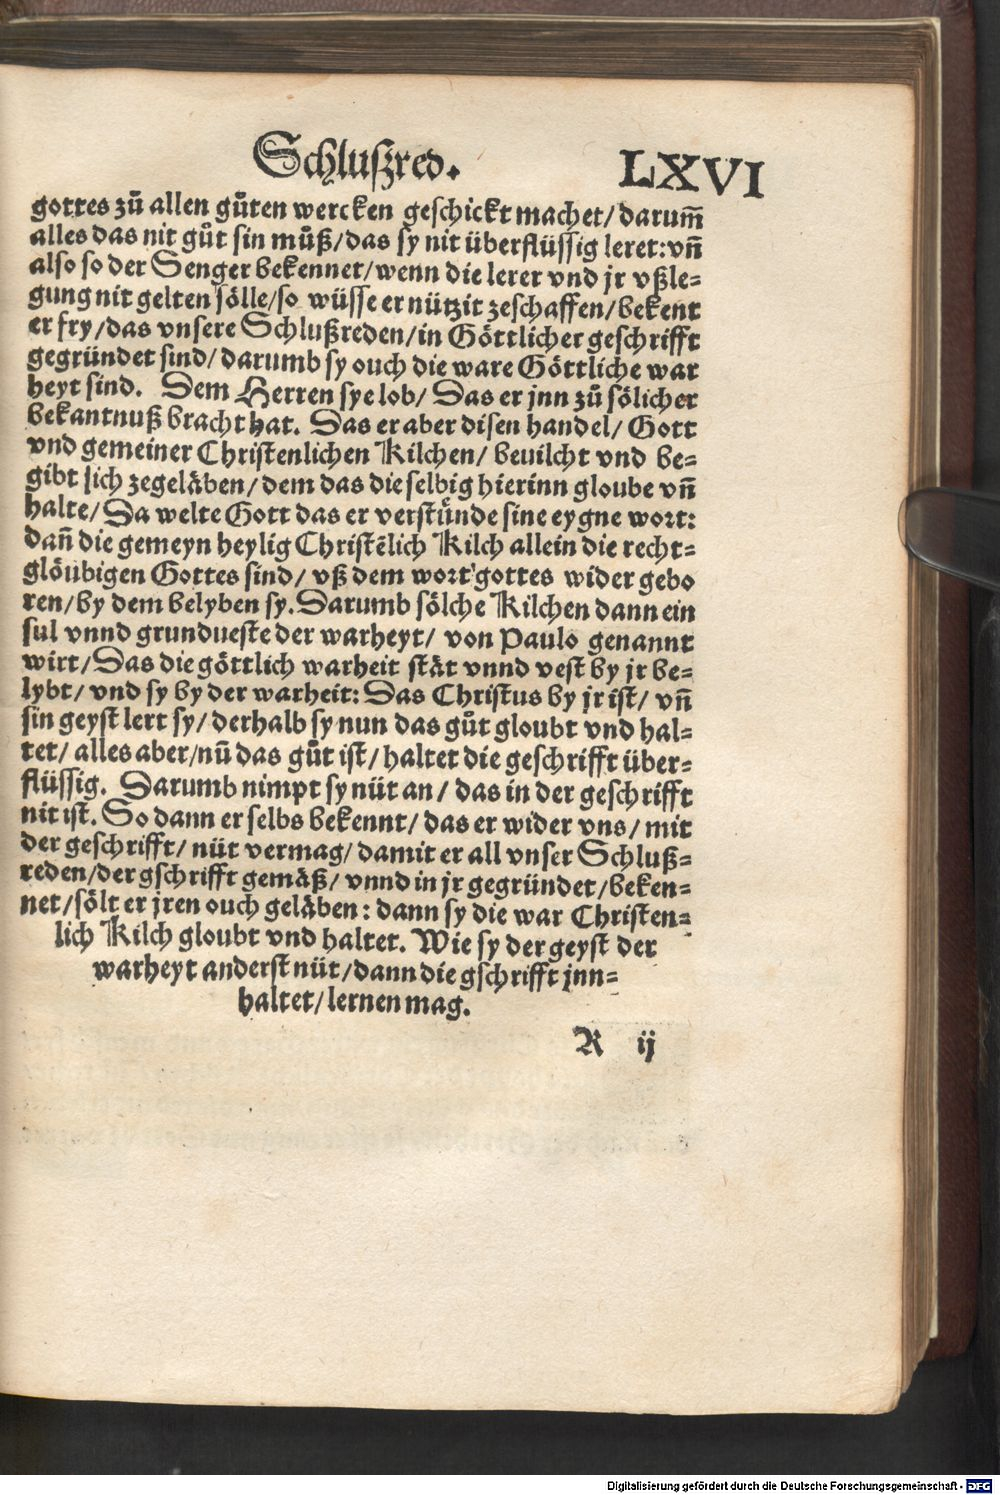 Schlußred. LXVI
gottes zuͦ allen guͦten wercken geschickt machet/ darum̃
alles das nit guͦt sin muͦß/ das sy nit überflüssig leret: vñ
also so der Senger bekennet/ wenn die lerer vnd jr vßle-
gung nit gelten sölle/ so wüsse er nützit zeschaffen/ bekent
er fry/ das vnsere Schlußreden/ in Göttlicher geschrifft
gegründet sind/ darumb sy ouch die ware Göttliche war
heyt sind. Dem Herren sye lob/ Das er jnn zuͦ sölicher
bekantnuß bracht hat. Das er aber disen handel/ Gott
vnd gemeiner Christenlichen Kilchen/ beuilcht vnd be-
gibt sich zegeläben/ dem das die selbig hierinn gloube vñ
halte/ Da welte Gott das er verstünde sine eygne wort:
dañ die gemeyn heylig Christẽlich Kilch allein die recht-
glöubigen Gottes sind/ vß dem wort gottes wider gebo
ren/ by dem belyben sy. Darumb sölche Kilchen dann ein
sul vnnd grundueste der warheyt/ von Paulo genannt
wirt/ Das die göttlich warheit stät vnnd vest by jr be-
lybt/ vnd sy by der warheit: Das Christus by jr ist/ vñ
sin geyst lert sy/ derhalb sy nun das guͦt gloubt vnd hal-
tet/ alles aber/ nũ das guͦt ist/ haltet die geschrifft über-
flüssig. Darumb nimpt sy nüt an/ das in der geschrifft
nit ist. So dann er selbs bekennt/ das er wider vns/ mit
der geschrifft/ nüt vermag/ damit er all vnser Schluß-
reden/ der gschrifft gemäß/ vnnd in jr gegründet/ beken-
net/ sölt er jren ouch geläben: dann sy die war Christen-
lich Kilch gloubt vnd haltet. Wie sy der geyst der
warheyt anderst nüt/ dann die gschrifft jnn-
haltet/ lernen mag.
R ij
Digitalisierung gefördert durch die Deutsche Forschungsgemeinschaft - DFG